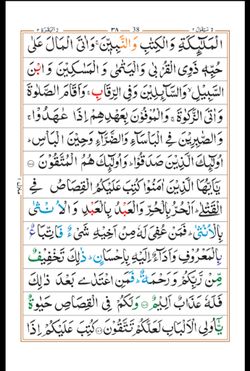 سيقول ٢ ٣٨ 38 البقرة ٢
الْمَلٰٓئِكَةِ وَالْكِتٰبِ وَالنَّبِيّٖنَ ۚ وَاٰتَى الْمَالَ عَلٰى
حُبِّهٖ ذَوِى الْقُرْبٰى وَالْيَتٰمٰى وَالْمَسٰكِيْنَ وَابْنَ
السَّبِيْلِ ۙ وَالسَّآئِلِيْنَ وَفِى الرِّقَابِ ۚ وَاَقَامَ الصَّلٰوةَ
وَاٰتَى الزَّكٰوةَ ۚ وَالْمُوْفُوْنَ بِعَهْدِهِمْ اِذَا عٰهَدُوْا ۚ
وَالصّٰبِرِيْنَ فِى الْبَاْسَآءِ وَالضَّرَّآءِ وَحِيْنَ الْبَاْسِ ؕ
اُولٰٓئِكَ الَّذِيْنَ صَدَقُوْا ؕ وَاُولٰٓئِكَ هُمُ الْمُتَّقُوْنَ
يٰٓاَيُّهَا الَّذِيْنَ اٰمَنُوْا كُتِبَ عَلَيْكُمُ الْقِصَاصُ فِى
الْقَتْلٰى ؕ اَلْحُرُّ بِالْحُرِّ وَالْعَبْدُ بِالْعَبْدِ وَالْاُنْثٰى
بِالْاُنْثٰى ؕ فَمَنْ عُفِىَ لَهٗ مِنْ اَخِيْهِ شَىْءٌ فَاتِّبَاعٌۢ
بِالْمَعْرُوْفِ وَاَدَآءٌ اِلَيْهِ بِاِحْسَانٍ ؕ ذٰلِكَ تَخْفِيْفٌ
مِّنْ رَّبِّكُمْ وَرَحْمَةٌ ؕ فَمَنِ اعْتَدٰى بَعْدَ ذٰلِكَ
فَلَهٗ عَذَابٌ اَلِيْمٌ وَلَكُمْ فِى الْقِصَاصِ حَيٰوةٌ
يّٰٓاُولِى الْاَلْبَابِ لَعَلَّكُمْ تَتَّقُوْنَ كُتِبَ عَلَيْكُمْ اِذَا